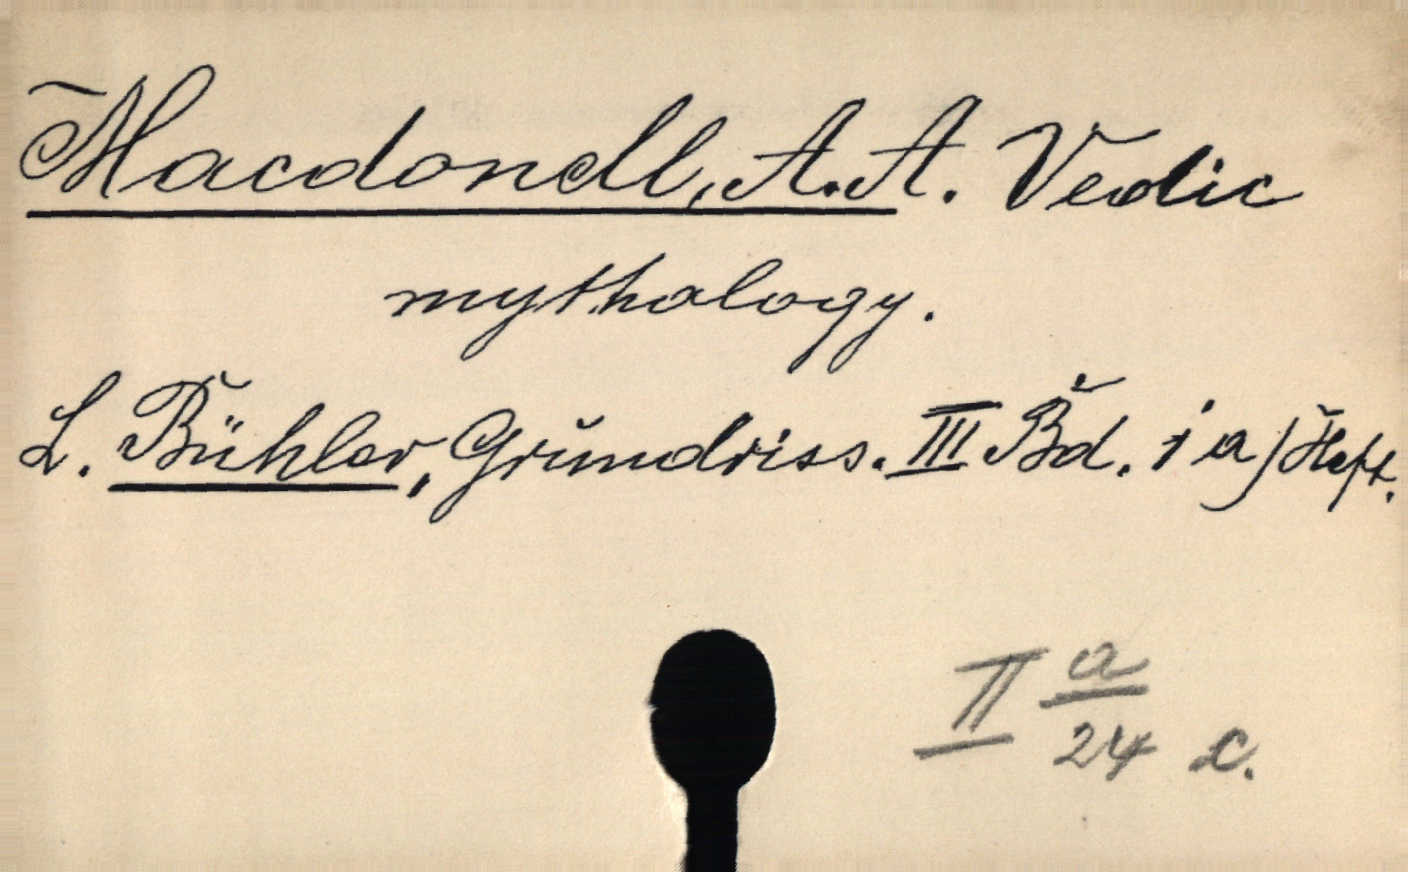 Macdonell, A. A. Vedic
mythology.
L. Bühler, Grundriss. III Bd. 1 a) Heft.
II a/24 c.